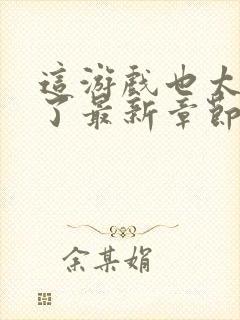 這游戲也太
了最新章節
余某娟